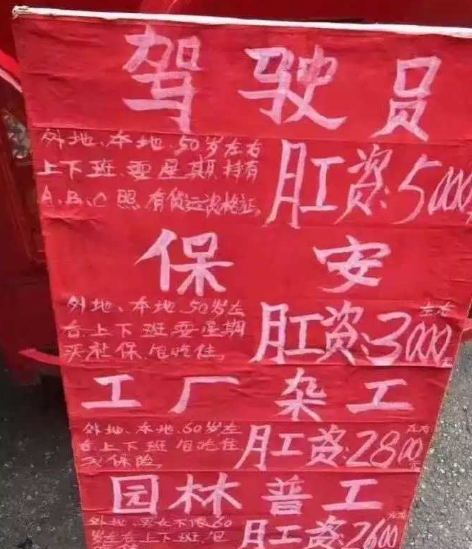 驾驶员
外地、本地、50岁左右
上下班、要星期持有
A.B.C照.有货运资格证.
月工资:5000
保安
外地、本地、50岁左
右上下班要星期
买社保包吃住.
月工资:3000左右
工厂杂工
外地、本地、60岁左
右上下班包吃住
买保险.
月工资:2800左右
园林普工
外地、男女不限60
岁左右上下班,包
吃住
月工资:2600左右